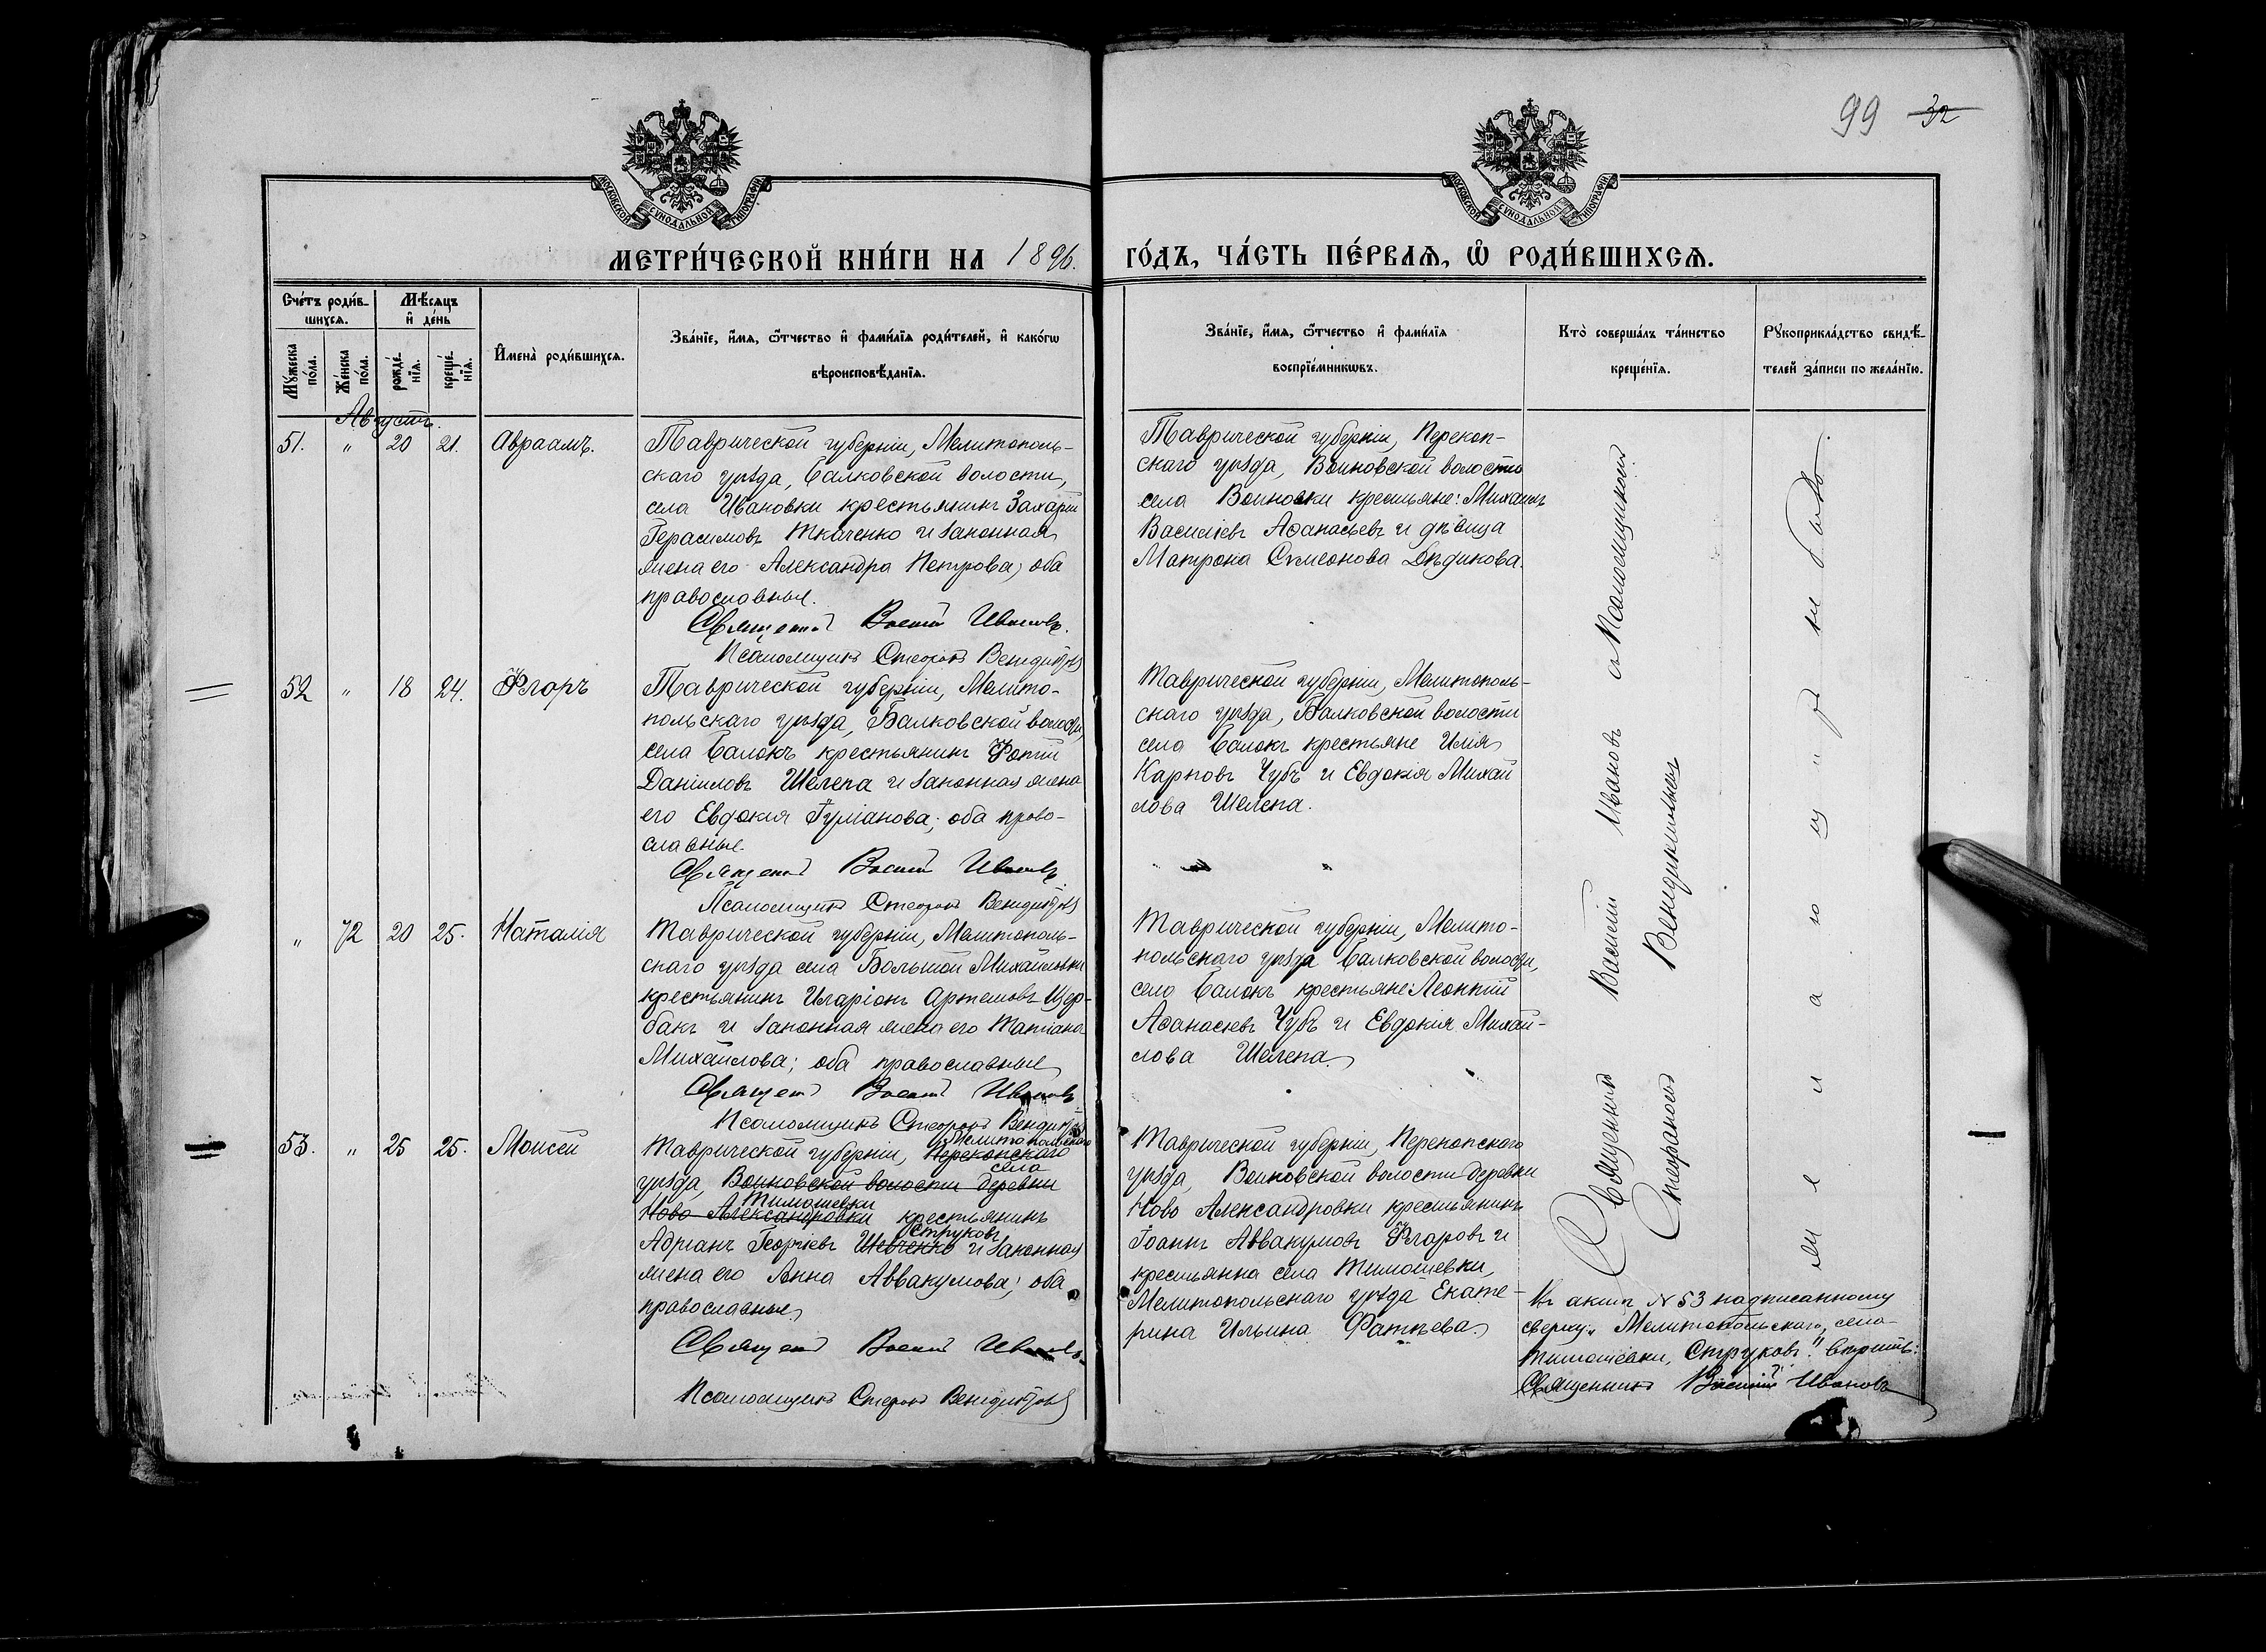 99 32
МОСКОВСКОЙ СУНОДАЛЬНОЙ ТИПОГРАФІИ
МОСКОВСКОЙ СУНОДАЛЬНОЙ ТИПОГРАФІИ
МЕТРИ́ЧЕСКОЙ КНИ́ГИ НА 1896.
ГО́ДЪ, ЧА́СТЬ ПЕ́РВАѦ, Ѡ҆ РОДИ́ВШИХСѦ.
Сче́тъ роди́в-
шихся.
Мѣ́сяцъ
и҆ де́нь
Мꙋ́жеска
по́ла.
Же́нска
по́ла.
рожде́-
нїѧ.
креще́-
нїѧ.
И҆мена̀ роди́вшихсѧ.
Зва́нїе, и҆́мѧ, ѻ҆́тчество и҆ фами́лїѧ роди́телей, и҆ како́гѡ
вѣроисповѣ́данїѧ.
Зва́нїе, и҆́мѧ, ѻ҆́тчество и҆ фами́лїѧ
воспрїе́мникѡвъ.
Кто̀ соверша́лъ та́инство
креще́нїѧ.
Рꙋкоприкла́дство свидѣ́-
телей за́писи по жела́нїю.
Августъ.
51. " 20 21. Авраамъ.
Таврической губерніи, Мелитополь-
скаго уѣзда, Балковской волости,
села Ивановки крестьянинъ Захарій
Герасимовъ Ткаченко и законная
жена его Александра Петрова; оба
православные.
Священникъ Василій Ивановъ.
Псаломщикъ Стефанъ Бендиктовъ
Таврической губерніи, Перекоп-
скаго уѣзда, Воиновской волости
села Воиновки крестьяне: Михаилъ
Василіевъ Аѳанасьевъ и дѣвица
Матрона Сѵмеонова Дѣдикова.
52 " 18 24. Флоръ
Таврической губерніи, Мелито-
польскаго уѣзда, Балковской волости,
села Балокъ крестьянинъ Фотій
Даніиловъ Шелепа и законная жена
его Евдокія Гуріанова; оба право-
славные.
Священникъ Василій Ивановъ
Псаломщикъ Стефанъ Бендиктовъ
Таврической губерніи, Мелитополь-
скаго уѣзда, Балковской волости
села Балокъ крестьяне Илія
Карповъ Чубъ и Евдокія Михай
лова Шелепа.
" 72 20 25. Наталія
Таврической губерніи, Мелитополь-
скаго уѣзда села Большой Михайловки
крестьянинъ Иларіонъ Артемовъ Щер-
бакъ и законная жена его Татіана
Михайлова; оба православные
Священникъ Василій Ивановъ
Псаломщикъ Стефанъ Бендиктовъ
Таврической губерніи, Мелито-
польскаго уѣзда Балковской волости,
села Балокъ крестьяне: Леонтій
Аѳанасіевъ Чубъ и Евдокія Михай-
лова Шелепа.
53. " 25 25. Моисей
Мелитопольскаго
Таврической губерніи, Перекопскаго
села
уѣзда, Воиновской волости деревни
Тимошевки
Ново Александровки крестьянинъ
Струковъ
Адріанъ Георгіевъ Шевченко и законная
жена его Анна Аввакумова; оба
православные,
Священникъ Василій Ивановъ
Псаломщикъ Стефанъ Бендиктовъ
Таврической губерніи, Перекопскаго
уѣзда, Воиновской волости деревни
Ново Александровки крестьянинъ
Іоаннъ Аввакумовъ Фларовъ и
крестьянка села Тимошевки,
Мелитопольскаго уѣзда Екате-
рина Ильина Фатѣева.
Священникъ Василій Ивановъ съ Псаломщикомъ
Стефаномъ Бендиктовымъ
желающихъ не было.
Въ актѣ N 53 надписанному
сверху: "Мелитопольскаго, села
Тимошевки, Струковъ" вѣрить:
Священникъ Василій Ивановъ